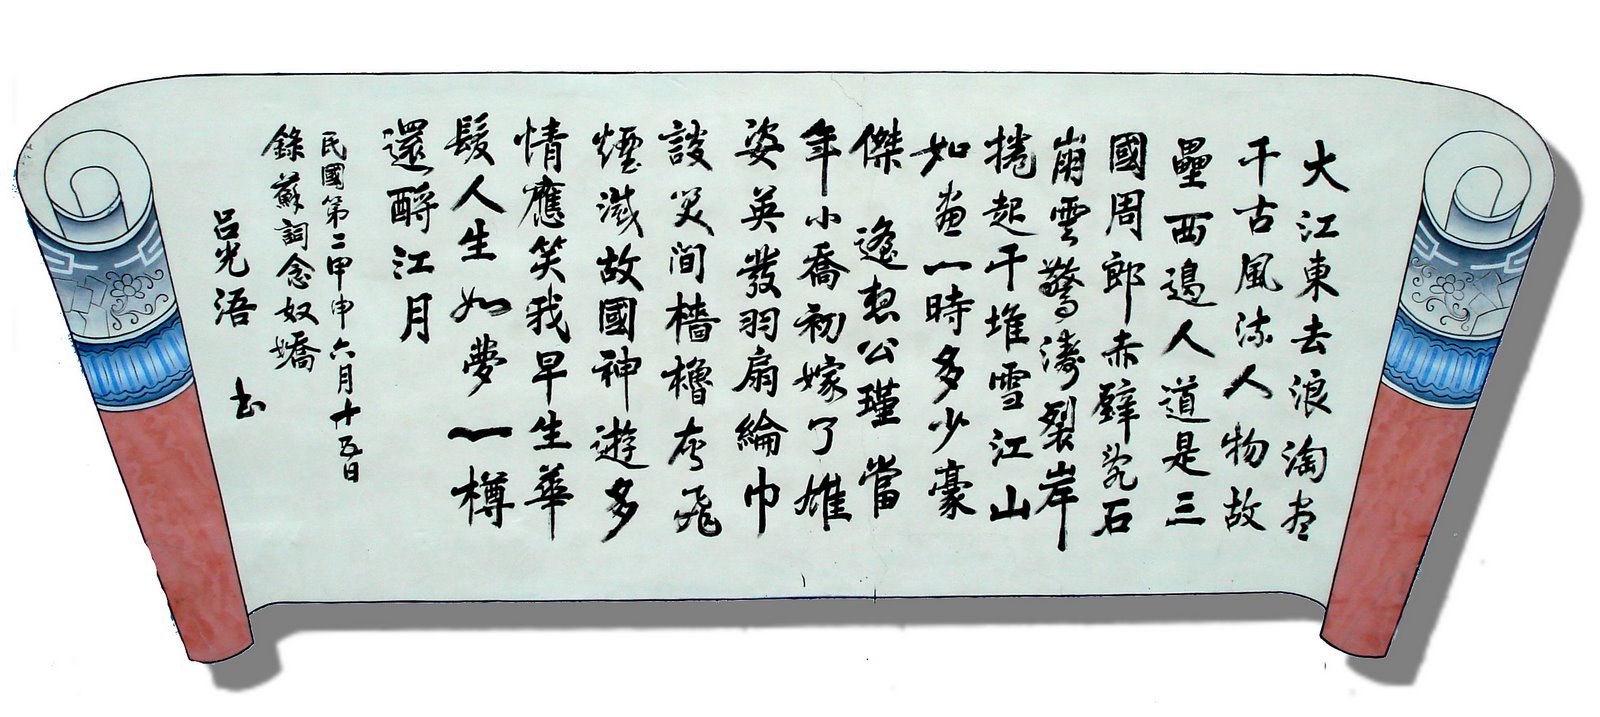 大江東去浪淘盡
千古風流人物故
壘西邊人道是三
國周郎赤壁亂石
崩雲驚濤裂岸
捲起千堆雪江山
如畫一時多少豪
傑 遙想公瑾當
年小喬初嫁了雄
姿英發羽扇綸巾
談笑間檣櫓灰飛
煙滅故國神遊多
情應笑我早生華
髮人生如夢一樽
還酹江月
民國第二甲申六月十五日
錄蘇詞念奴嬌
呂光浯 書